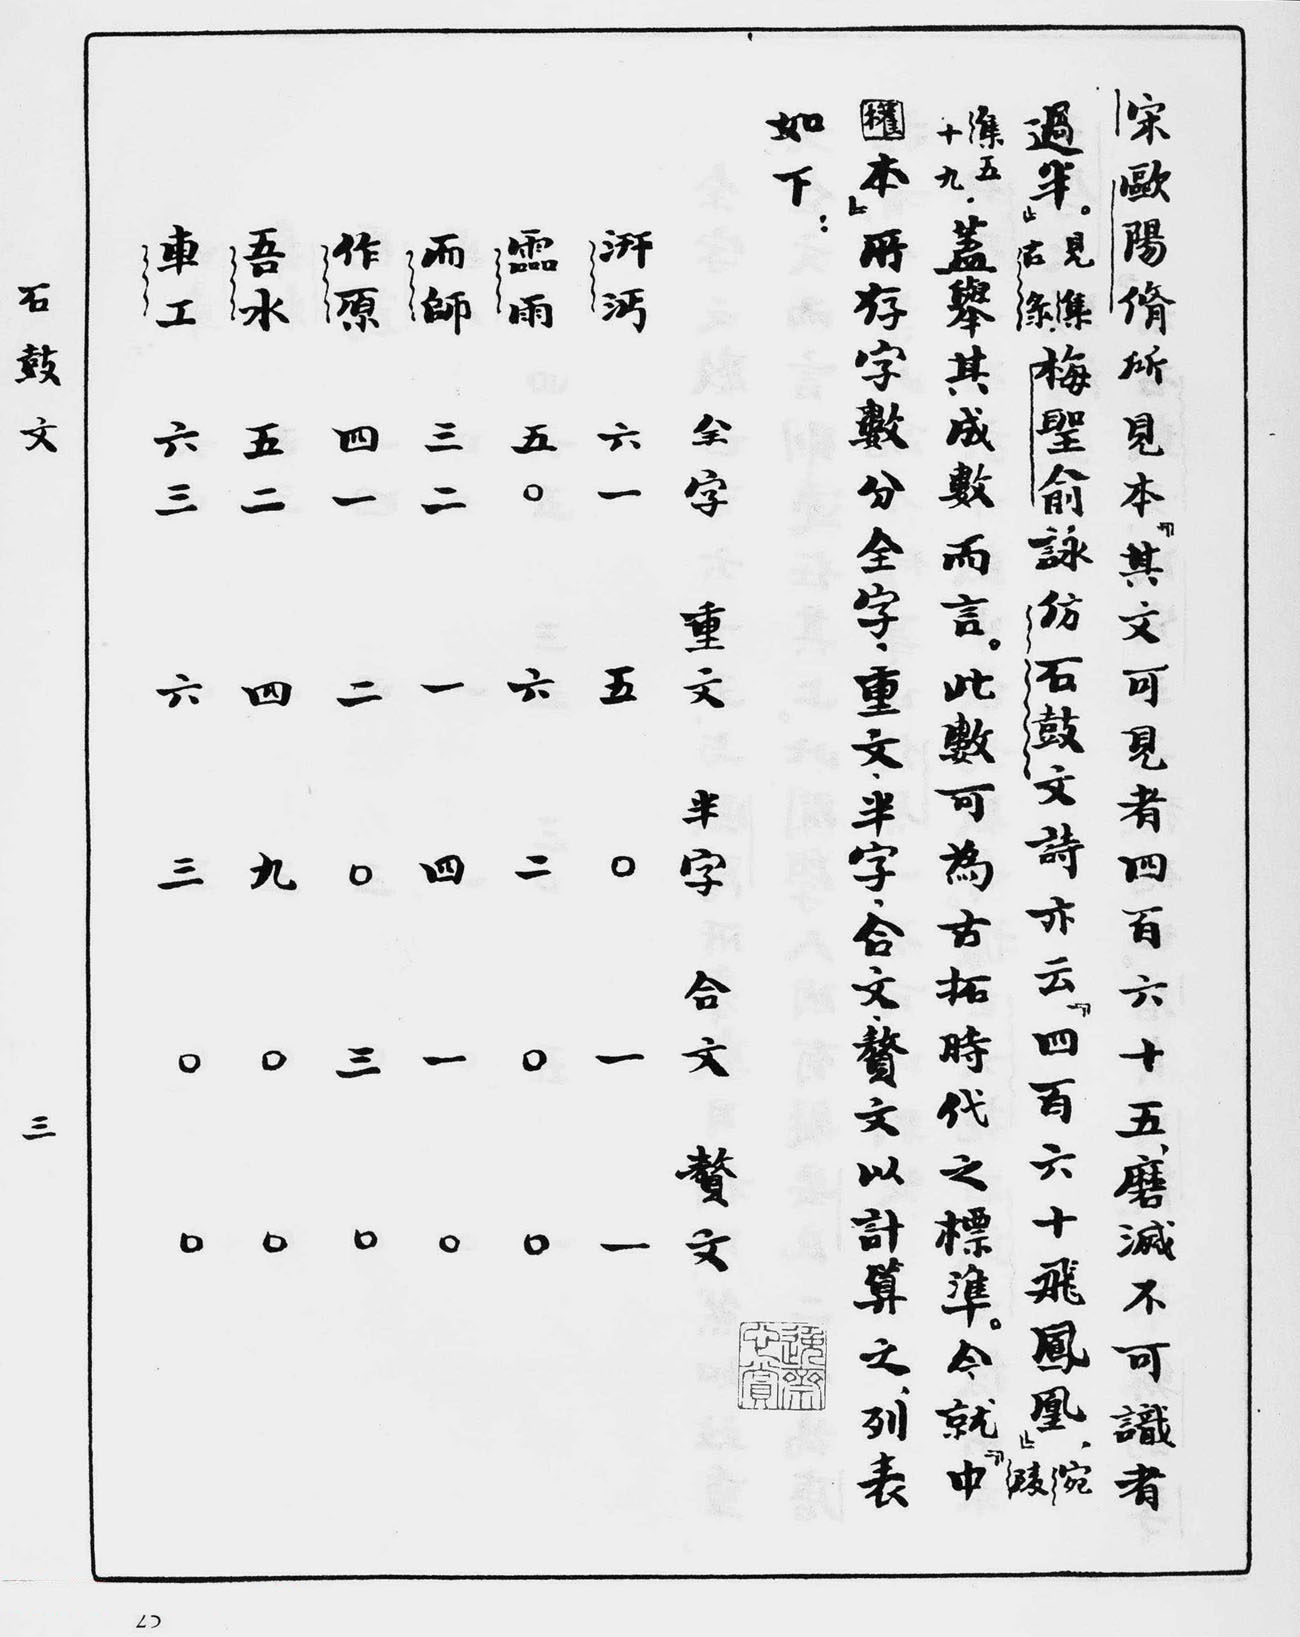 宋歐陽脩所見本「其文可見者四百六十五、磨滅不可識者
過半。」見集古錄。梅聖俞詠仿石鼓文詩亦云「四百六十飛鳳凰」、宛陵
集五十九。蓋舉其成數而言。此數可為古拓時代之標準。今就「中
權本」所存字數分全字、重文、半字、合文、贅文以計算之、列表
如下：
全字 重文 半字 合文 贅文
汧沔 六一 五 〇 一 一
霝雨 五〇 六 二 〇 〇
而師 三二 一 四 一 〇
作原 四一 二 〇 三 〇
吾水 五二 四 九 〇 〇
車工 六三 六 三 〇 〇
石鼓文 三
25